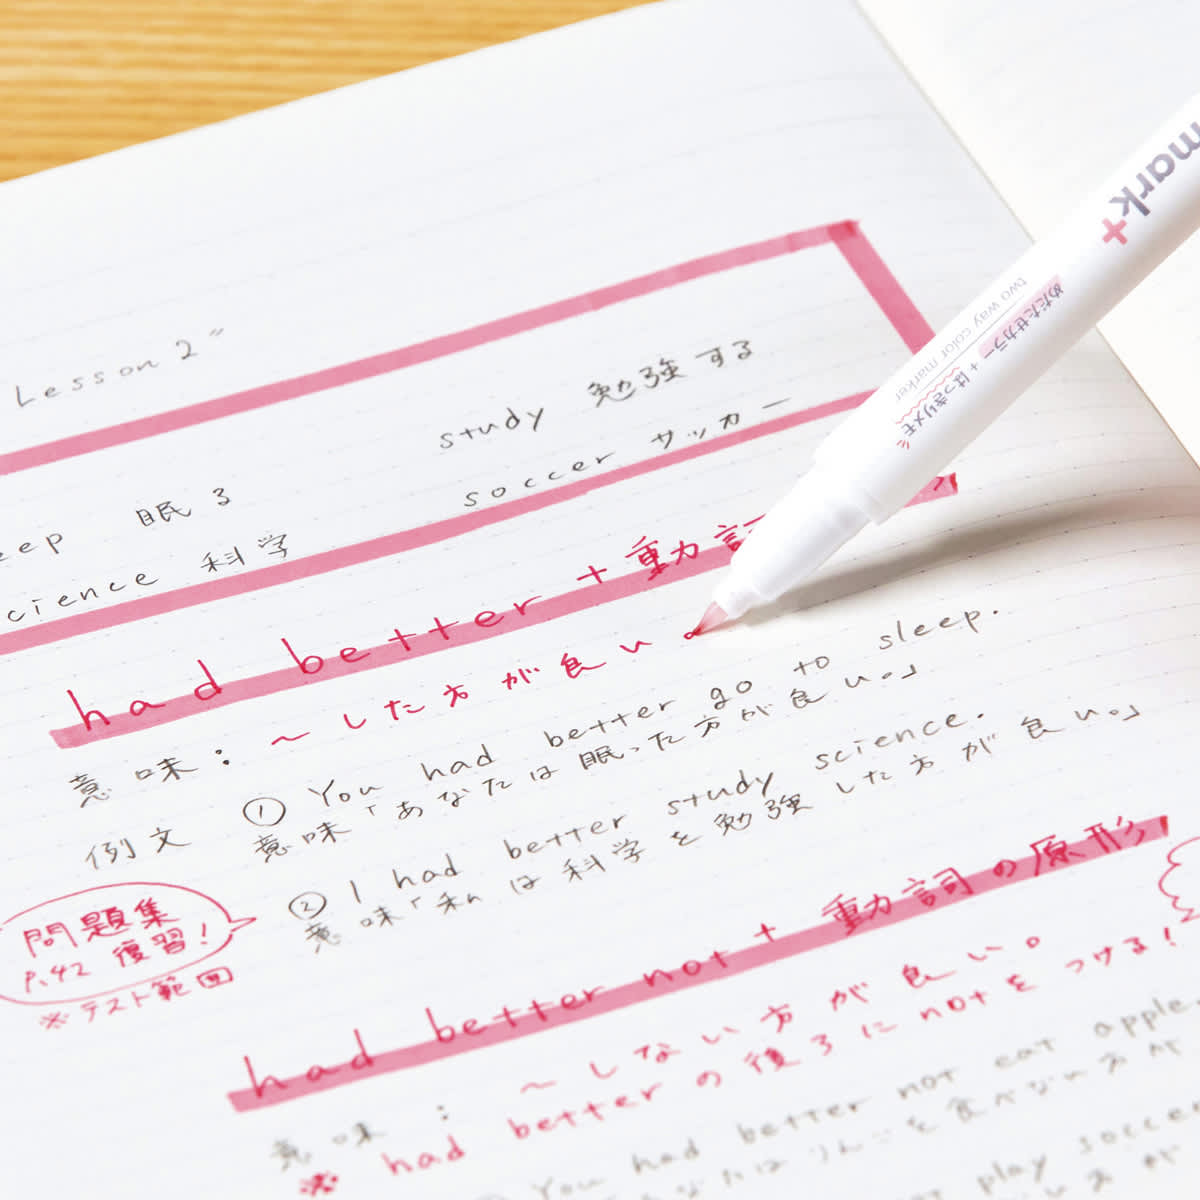 Lesson 2"
study 勉強する
眠る
soccer サッカー
science 科学
had better + 動詞
意味： ～した方が良い。
例文 ① You had better go to sleep.
意味「あなたは眠った方が良い。」
② I had better study science.
意味「私は科学を勉強した方が良い。」
問題集
P.42 復習！
※テスト範囲
had better not + 動詞の原形
意味： ～しない方が良い。
※ had better の後ろに not をつける！
You had better not eat apple
りんごを食べない方が
play soccer
mark+
two way color marker
めだたせカラー + はっきりメモ